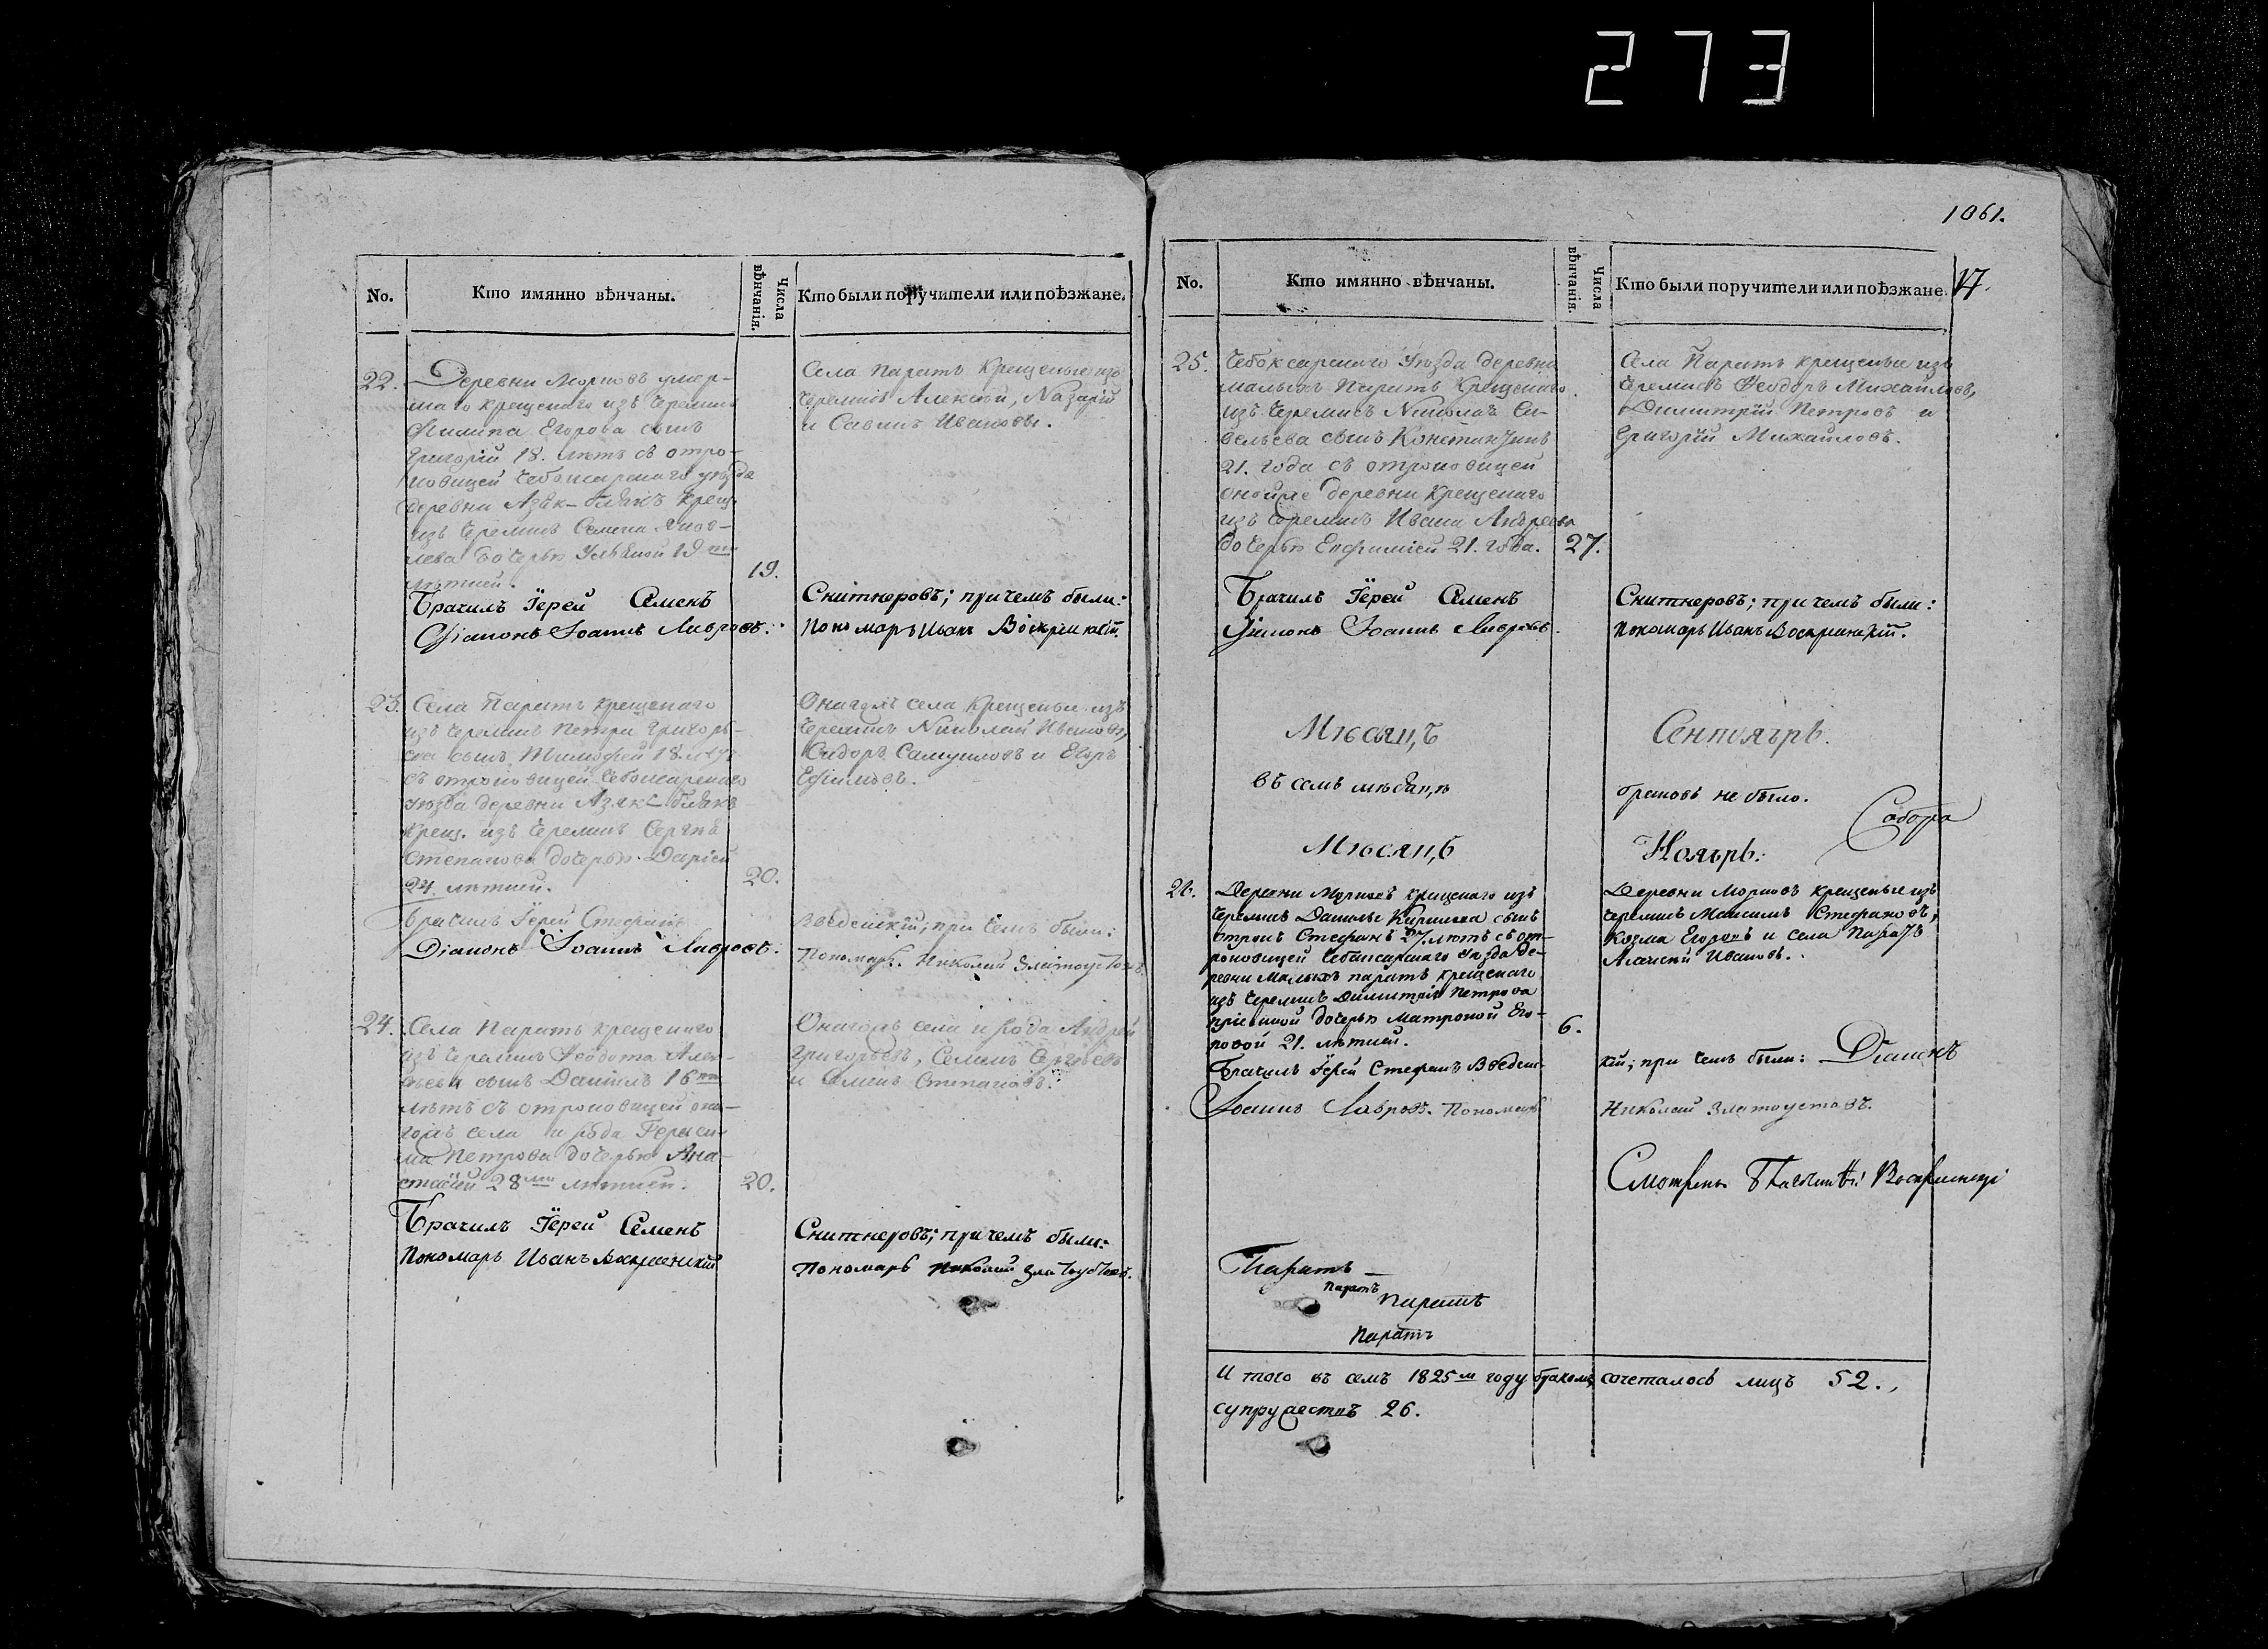 273
No.
Кто имянно вѣнчаны.
Числа вѣнчанія.
Кто были поручители или поѣзжане.
22.
Деревни Морковъ умер-
шаго крещенаго изъ Черемисъ
Филипа Егорова сынъ
Григорій 18. лѣтъ съ отро-
ковицей Чебоксарскаго уѣзда
деревни Азяк-билякъ Крещ.
изъ Черемисъ Семена Яков-
лева дочерью Ульяной 19
лѣтней.
19.
Села Паратъ Крещеные изъ
Черемисъ Алексѣй, Назарій
и Савинъ Ивановы.
Брачилъ Іерей Семенъ
Діаконъ Іоаннъ Лавровъ.
Снитнеровъ; при чемъ были:
Пономарь Иванъ Воскресенскій.
23.
Села Паратъ крещенаго
изъ Черемисъ Петра Григорь-
ева сынъ Тимофей 18. лѣтъ
съ отроковицей Чебоксарскаго
уѣзда деревни Азяк-билякъ
Крещ. изъ Черемисъ Сергѣя
Степанова дочерью Дарьей
24. лѣтней.
20.
Онагожъ села Крещеные изъ
Черемисъ Николай Ивановъ,
Сидоръ Самуиловъ и Егоръ
Ефимовъ.
Брачилъ Іерей Стефанъ
Діаконъ Іоаннъ Лавровъ.
Введенскій; при чемъ были:
Пономарь Николай Златоустовъ.
24.
Села Паратъ крещенаго
изъ Черемисъ Феодота Алек-
сѣева сынъ Даниилъ 16
лѣтъ съ отроковицей она-
гожъ села и рода Гераси-
ма Петрова дочерью Ана-
стасіей 28 лѣтней.
20.
Онагожъ села и рода Андрей
Григорьевъ, Семенъ Сергѣевъ
и Семенъ Степановъ.
Брачилъ Іерей Семенъ
Пономарь Иванъ Воскресенскій
Снитнеровъ; при чемъ были:
Пономарь Николай Златоустовъ.
1061.
No.
Кто имянно вѣнчаны.
Числа вѣнчанія.
Кто были поручители или поѣзжане.
17.
25.
Чебоксарскаго Уѣзда деревни
малыхъ Паратъ Крещенаго
изъ Черемисъ Николая Са-
вельева сынъ Константинъ
21. года съ отроковицей
оной же деревни Крещенаго
изъ Черемисъ Ивана Андреева
дочерью Евфиміей 21. года.
27.
Села Паратъ крещеные изъ
Черемисъ Феодоръ Михайловъ,
Димитрій Петровъ и
Григорій Михайловъ.
Брачилъ Іерей Семенъ
Діаконъ Іоаннъ Лавровъ.
Снитнеровъ; при чемъ были:
Пономарь Иванъ Воскресенскій.
Мѣсяцъ
Сентябрь.
въ семъ мѣсяцѣ
браковъ не было.
Мѣсяцъ
Ноябрь.
26.
Деревни Морковъ крещенаго изъ
Черемисъ Данилы Кирилова сынъ
отрокъ Стефанъ 27. лѣтъ съ от-
роковицей Чебоксарскаго Уѣзда де-
ревни Малыхъ паратъ крещенаго
изъ Черемисъ Димитрія Петрова
пріемной дочерью Матроной Его-
ровой 21. лѣтней.
6.
Деревни Морковъ крещеные изъ
Черемисъ Максимъ Стефановъ,
Козма Егоровъ и села Паратъ
Алексѣй Ивановъ.
Брачилъ Іерей Стефанъ Введенс-
кій; при чемъ были: Діаконъ
Іоаннъ Лавровъ. Пономарь
Николай Златоустовъ.
Паратъ
Паратъ
Паратъ
Паратъ
И того въ семъ 1825 году бракомъ сочеталось лицъ 52.,
супружествъ 26.